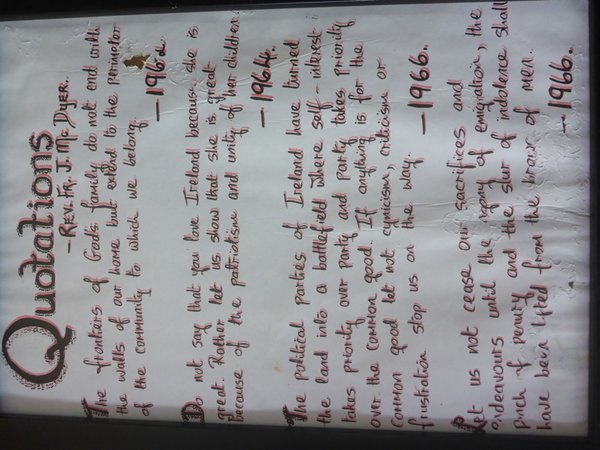 Quotations
- REV. FR. J. Mc. DYER.
The frontiers of Gods family do not end with
the walls of our home but extend to the perimeter
of the community to which we belong.
- 1962.
Do not say that you love Ireland because she is
great. Rather let us show that she is great
because of the patriotism and unity of her children.
- 1964.
The political parties of Ireland have turned
the land into a battlefield where self-interest
takes priority over party and party takes priority
over the common good. If anything is for the
common good let not cynicism, criticism or
frustration stop us on the way.
- 1966.
Let us not cease our sacrifices and
endeavours until the agony of emigration, the
pinch of penury and the slur of indolence shall
have been lifted from the brows of men.
- 1966.